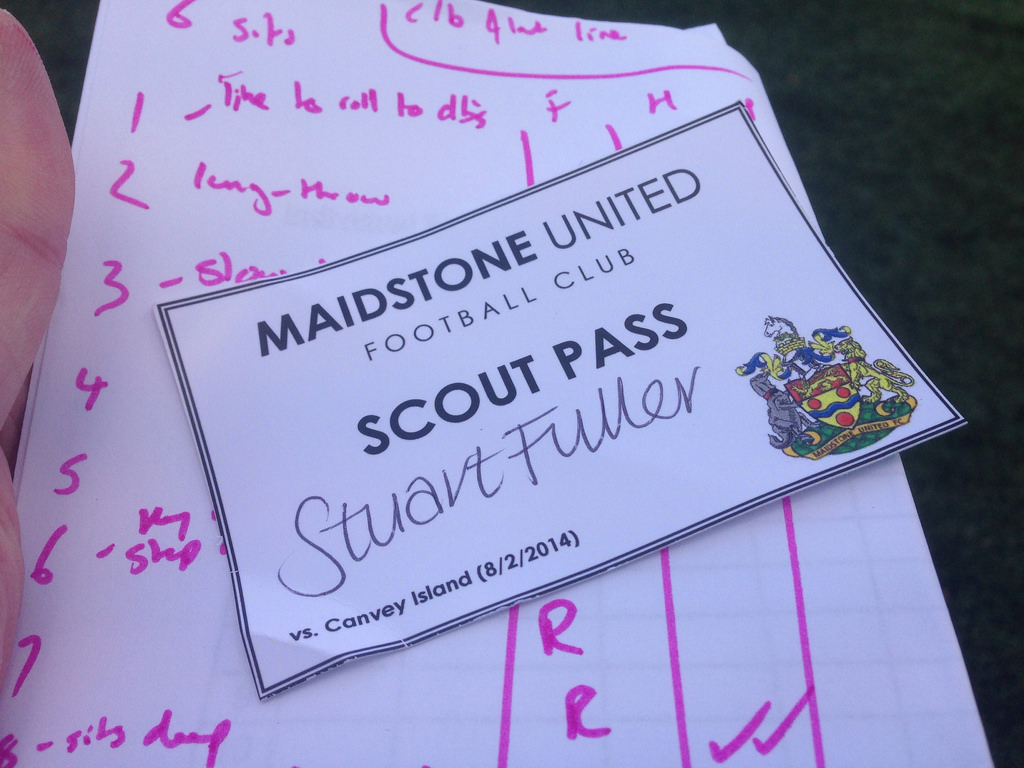 6 sits
c/b 4 line
1 - Time to roll to
F H
2 long-throw
3 -
4
5
6 - key
7
8 - sits deep
R
R
MAIDSTONE UNITED
FOOTBALL CLUB
SCOUT PASS
Stuart Fuller
vs. Canvey Island (8/2/2014)
MAIDSTONE UNITED FC